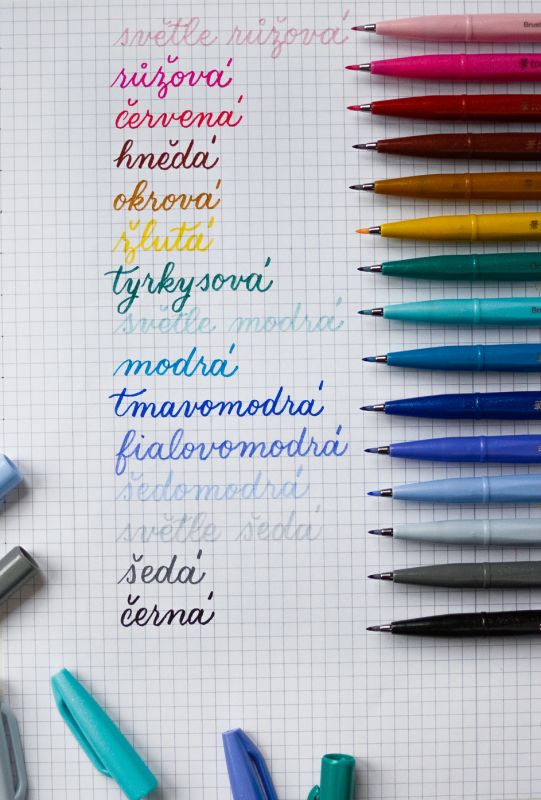 světle růžová
Brush
růžová
červená
hnědá
okrová
žlutá
tyrkysová
světle modrá
modrá
tmavomodrá
fialovomodrá
šedomodrá
světle šedá
šedá
černá